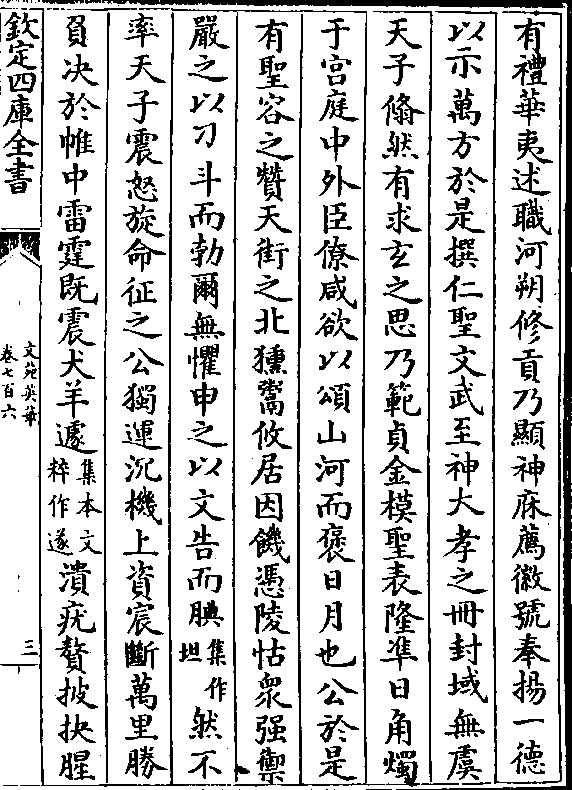 有禮華夷述職河朔修貢乃顯神庥薦徽號奉揚一德
以示萬方於是撰仁聖文武至神大孝之冊封域無虞
天子翛然有求玄之思乃範貞金模聖表隆準日角燭
于宫庭中外臣僚咸欲以頌山河而褒日月也公於是
有聖容之贊天街之北獯鬻攸居因饑憑陵怙衆强禦
嚴之以刁斗而勃爾無懼申之以文告而腆集作坦然不
率天子震怒旋命征之公獨運沉機上資宸斷萬里勝
負决於帷中雷霆既震犬羊遽集本文粹作遂潰疣贅披抉腥
欽定四庫全書
文苑英華
卷七百六
三